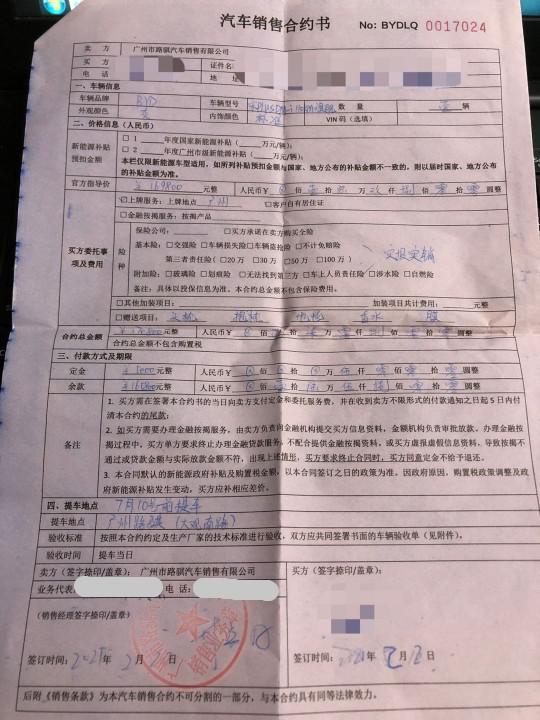 汽车销售合约书 No: BYDLQ 0017024
卖 方 广州市路骐汽车销售有限公司
买 方 证件名
电 话 地 址
一、车辆信息
车辆品牌 BYD 车辆型号 数 量 壹 辆
外观颜色 内饰颜色 标准 VIN 码（选填）
二、价格信息（人民币）
新能源补贴
预扣金额
□ 1 年度国家新能源补贴（ 万元/辆）；
□ 2 年度广州市级新能源补贴（ 万元/辆）；
本栏仅限新能源车型适用，如所列补贴预扣金额与国家、地方公布的补贴金额不一致的，则以届时国家、地方公布
的补贴金额为准。
官方指导价 ￥169800 元整 人民币￥ 佰 壹 拾 陆 万 玖 仟 捌 佰 零 拾 零 调整
买方委托事
项及费用
上牌服务：上牌地点 广州 □客户自有居住证
□金融按揭服务：按揭产品
险
种
保险公司： □买方承诺在卖方购买全险
基本险：□交强险 □车辆损失险□车辆盗抢险 □不计免赔险
第三者责任险（□20 万 □30 万 □50 万 □100 万） 实报实销
附加险：□玻璃险 □划痕险 □无法找到第三方 □车上人员责任险 □涉水险 □自燃险
备注：具体以投保信息为准。本合约总金额不包含保费费用。
□其他加装项目： 加装项目共计费用： 元整
□赠送项目： 膜
合约总金额 元整 人民币￥ 佰 拾 万 仟 佰 零 拾 零 调整
合约总金额不包含购置税
三、付款方式及期限
定金 ￥5000 元整 人民币￥ 佰 拾 万 伍 仟 零 佰 零 拾 零 调整
余款 元整 人民币￥ 佰 拾 万 仟 佰 零 拾 零 调整
备注
1. 买方需在签署本合约书的当日向卖方支付定金和委托服务费，并在收到卖方不限形式的付款通知之日起 5 日内付
清本合约的尾款；
2. 如买方需要办理金融按揭服务，由卖方负责向金融机构提交买方信息资料，金额机构负责审批放款。办理金融按
揭过程中，买方单方要求终止办理金融贷款服务、不配合提供金融按揭资料，或买方虚报虚假信息资料，导致按揭不
通过或贷款金额与实际放款金额不符，出现上述情形，买方要求终止合同时，买方同意定金不给予退还。
3. 本合同默认的新能源政府补贴及购置税金额，以本合同签订之日的政策为准。因政府原因，购置税政策调整及政
府新能源补贴发生变动，买方应补相应差价。
四、提车地点 7月10号前提车
提车地点 广州路骐（大观南路）
验收标准 按照本合约约定及生产厂家的技术标准进行验收，双方应共同签署书面的车辆验收单（见附件）。
验收时间 提车当日
卖方（签字捺印/盖章）：广州市路骐汽车销售有限公司 买方（签字捺印/盖章）：
业务代表 电 话：
（销售经理签字捺印/盖章）
签订时间：2021年 月 日 签订时间：2021年 月 日
后附《销售条款》为本汽车销售合约不可分割的一部分，与本合约具有同等法律效力。